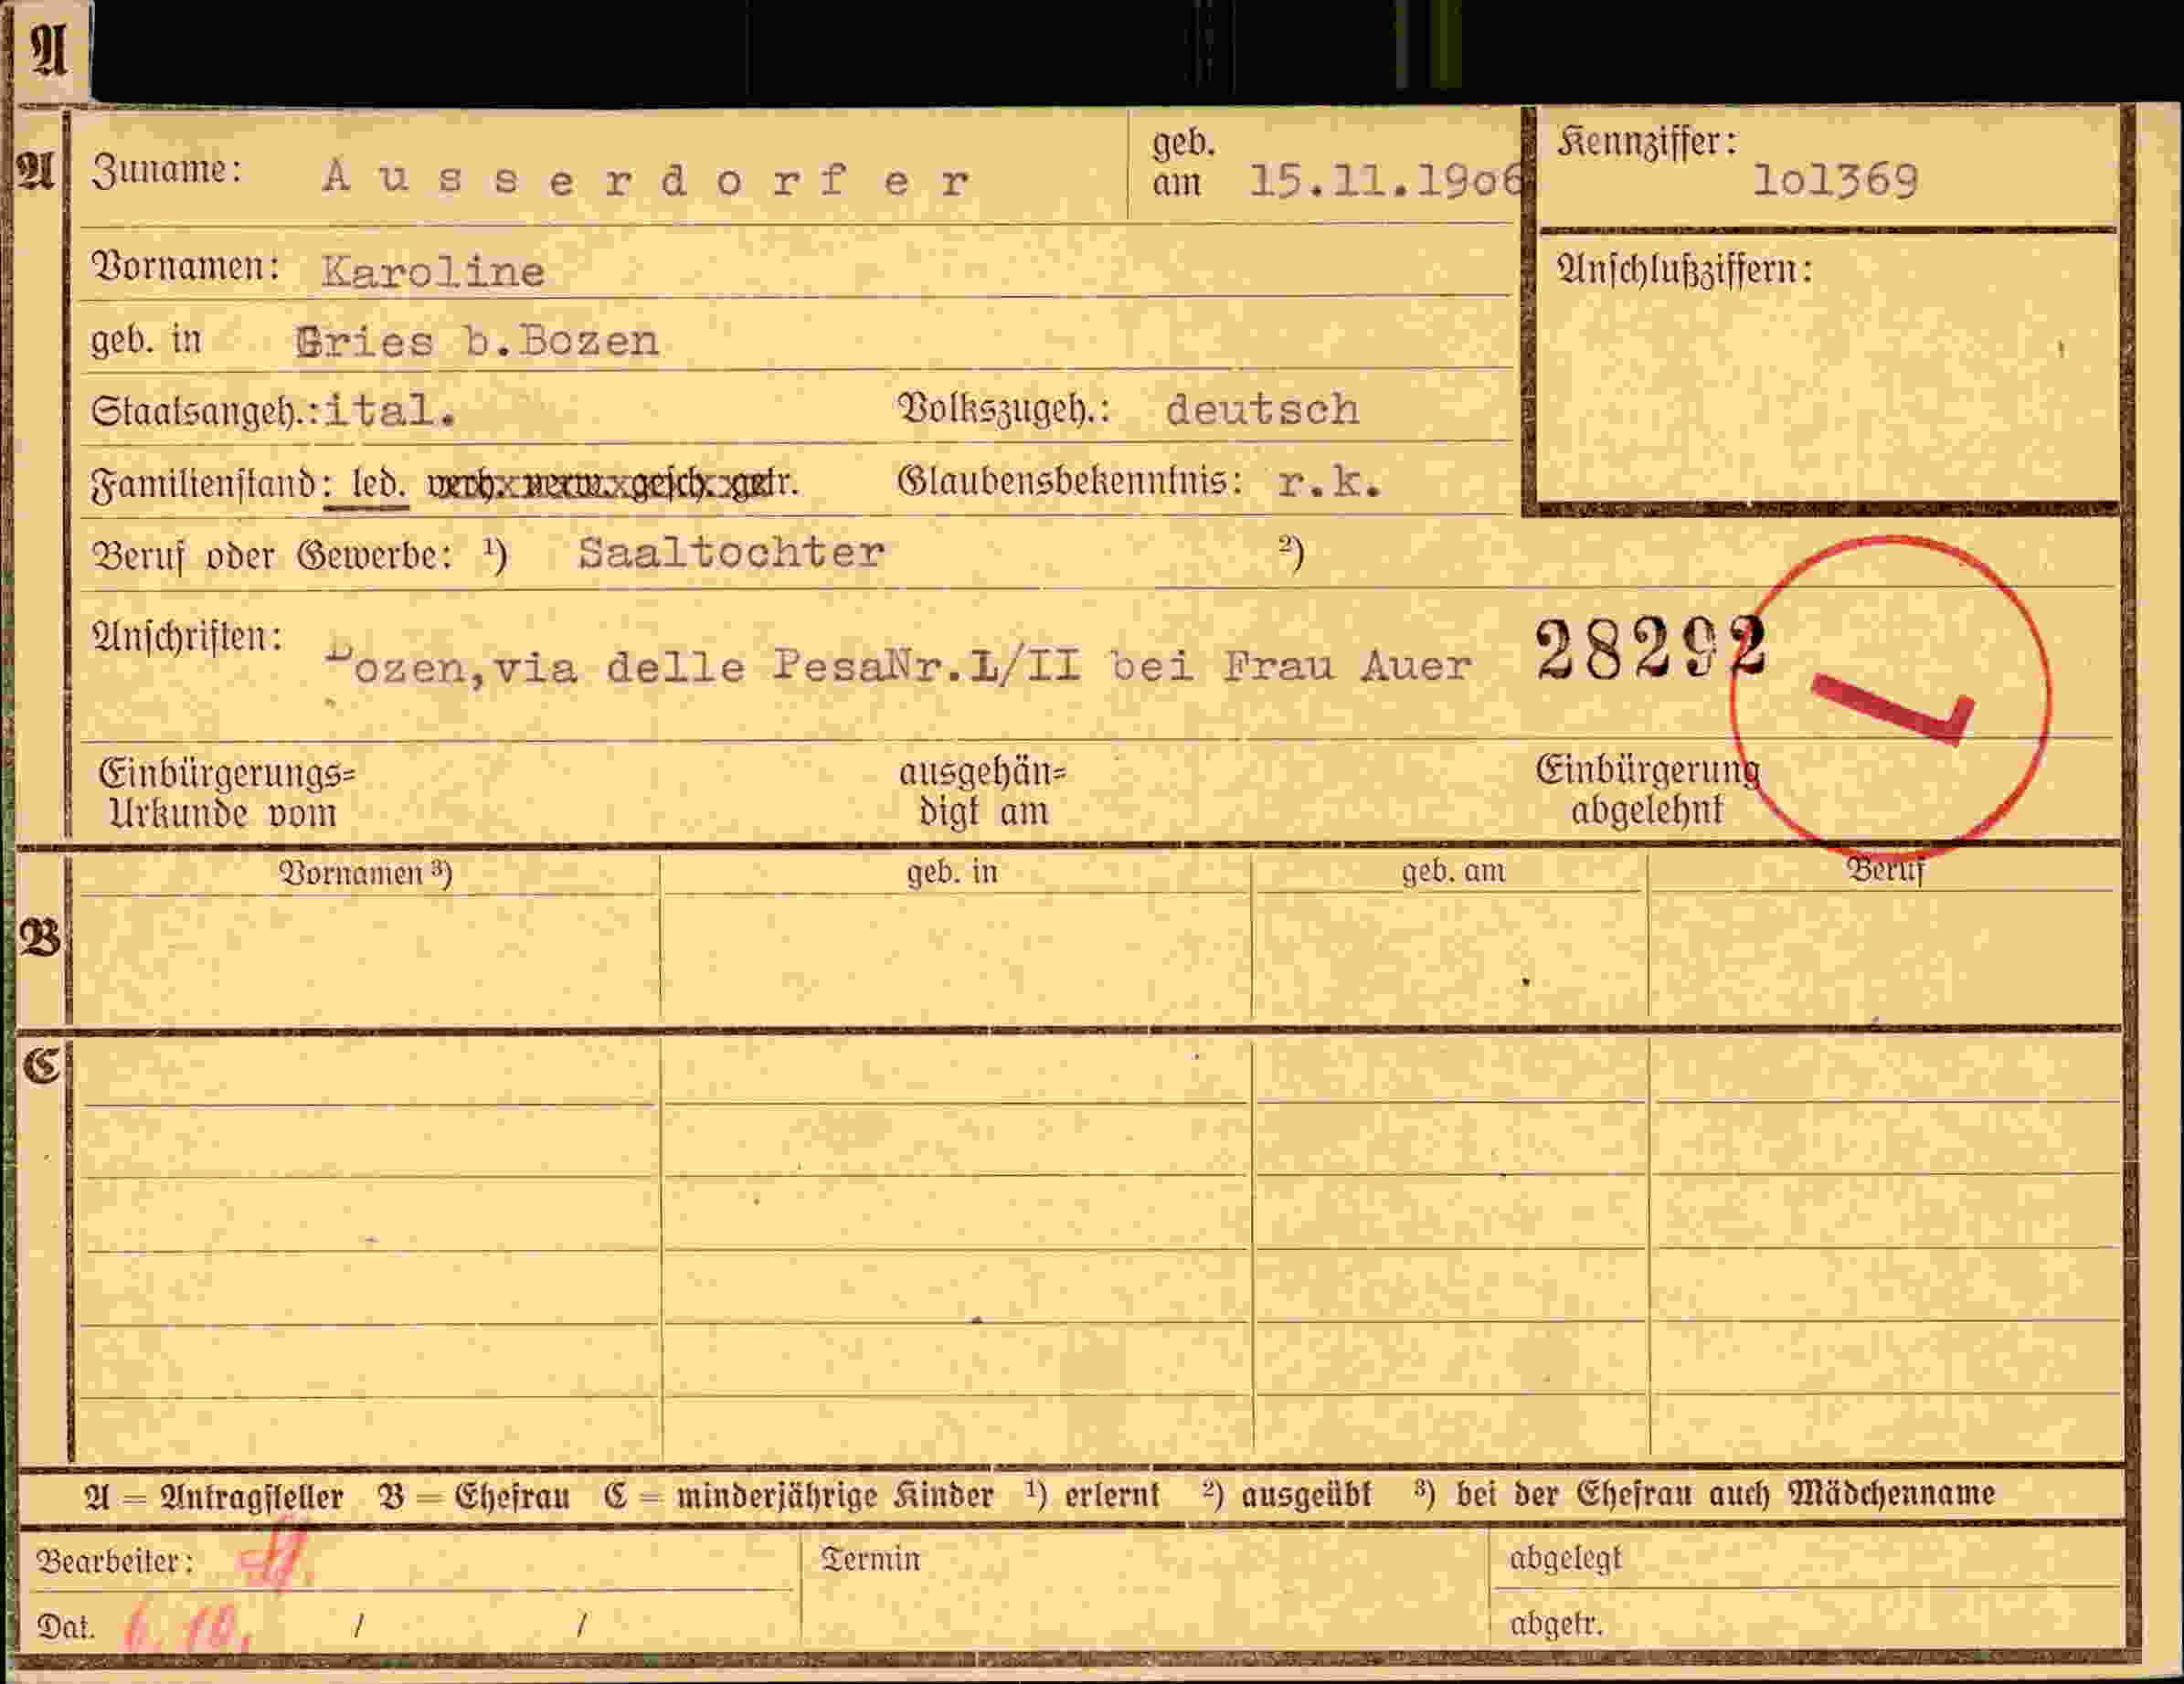 A
A Zuname: Ausserdorfer geb. am 15.11.19o6 Kennziffer: lol369
Vornamen: Karoline Anschlußziffern:
geb. in Gries b.Bozen
Staatsangeh.: ital. Volkszugeh.: deutsch
Familienstand: led. verh. verw. gesch. getr. Glaubensbekenntnis: r.k.
Beruf oder Gewerbe: ¹) Saaltochter ²)
Anschriften: Bozen,via delle PesaNr.1/II bei Frau Auer 28292 L
Einbürgerungs= ausgehän= Einbürgerung
Urkunde vom digt am abgelehnt
Vornamen ³) geb. in geb. am Beruf
B
C
A = Antragsteller B = Ehefrau C = minderjährige Kinder ¹) erlernt ²) ausgeübt ³) bei der Ehefrau auch Mädchenname
Bearbeiter: Termin abgelegt
Dat. 6. 10. / / abgetr.